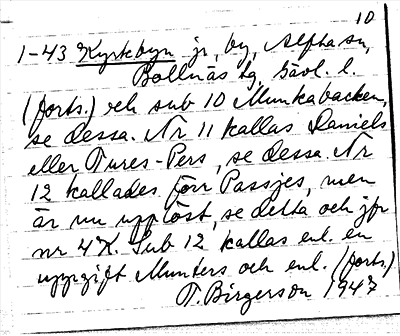 10
1-43 Kyrkbyn jr, by, Alfta sn,
Bollnäs tg. Gävl. l.
(forts.) och sub 10 Munkabacken,
se dessa. Nr 11 kallas Daniels
eller Tures-Pers, se dessa. Nr
12 kallades förr Passjes, men
är nu upplöst, se detta och jfr
nr 4 K. Sub 12 kallas enl. en
uppgift Munters och enl. (forts.)
T. Birgerson 1947